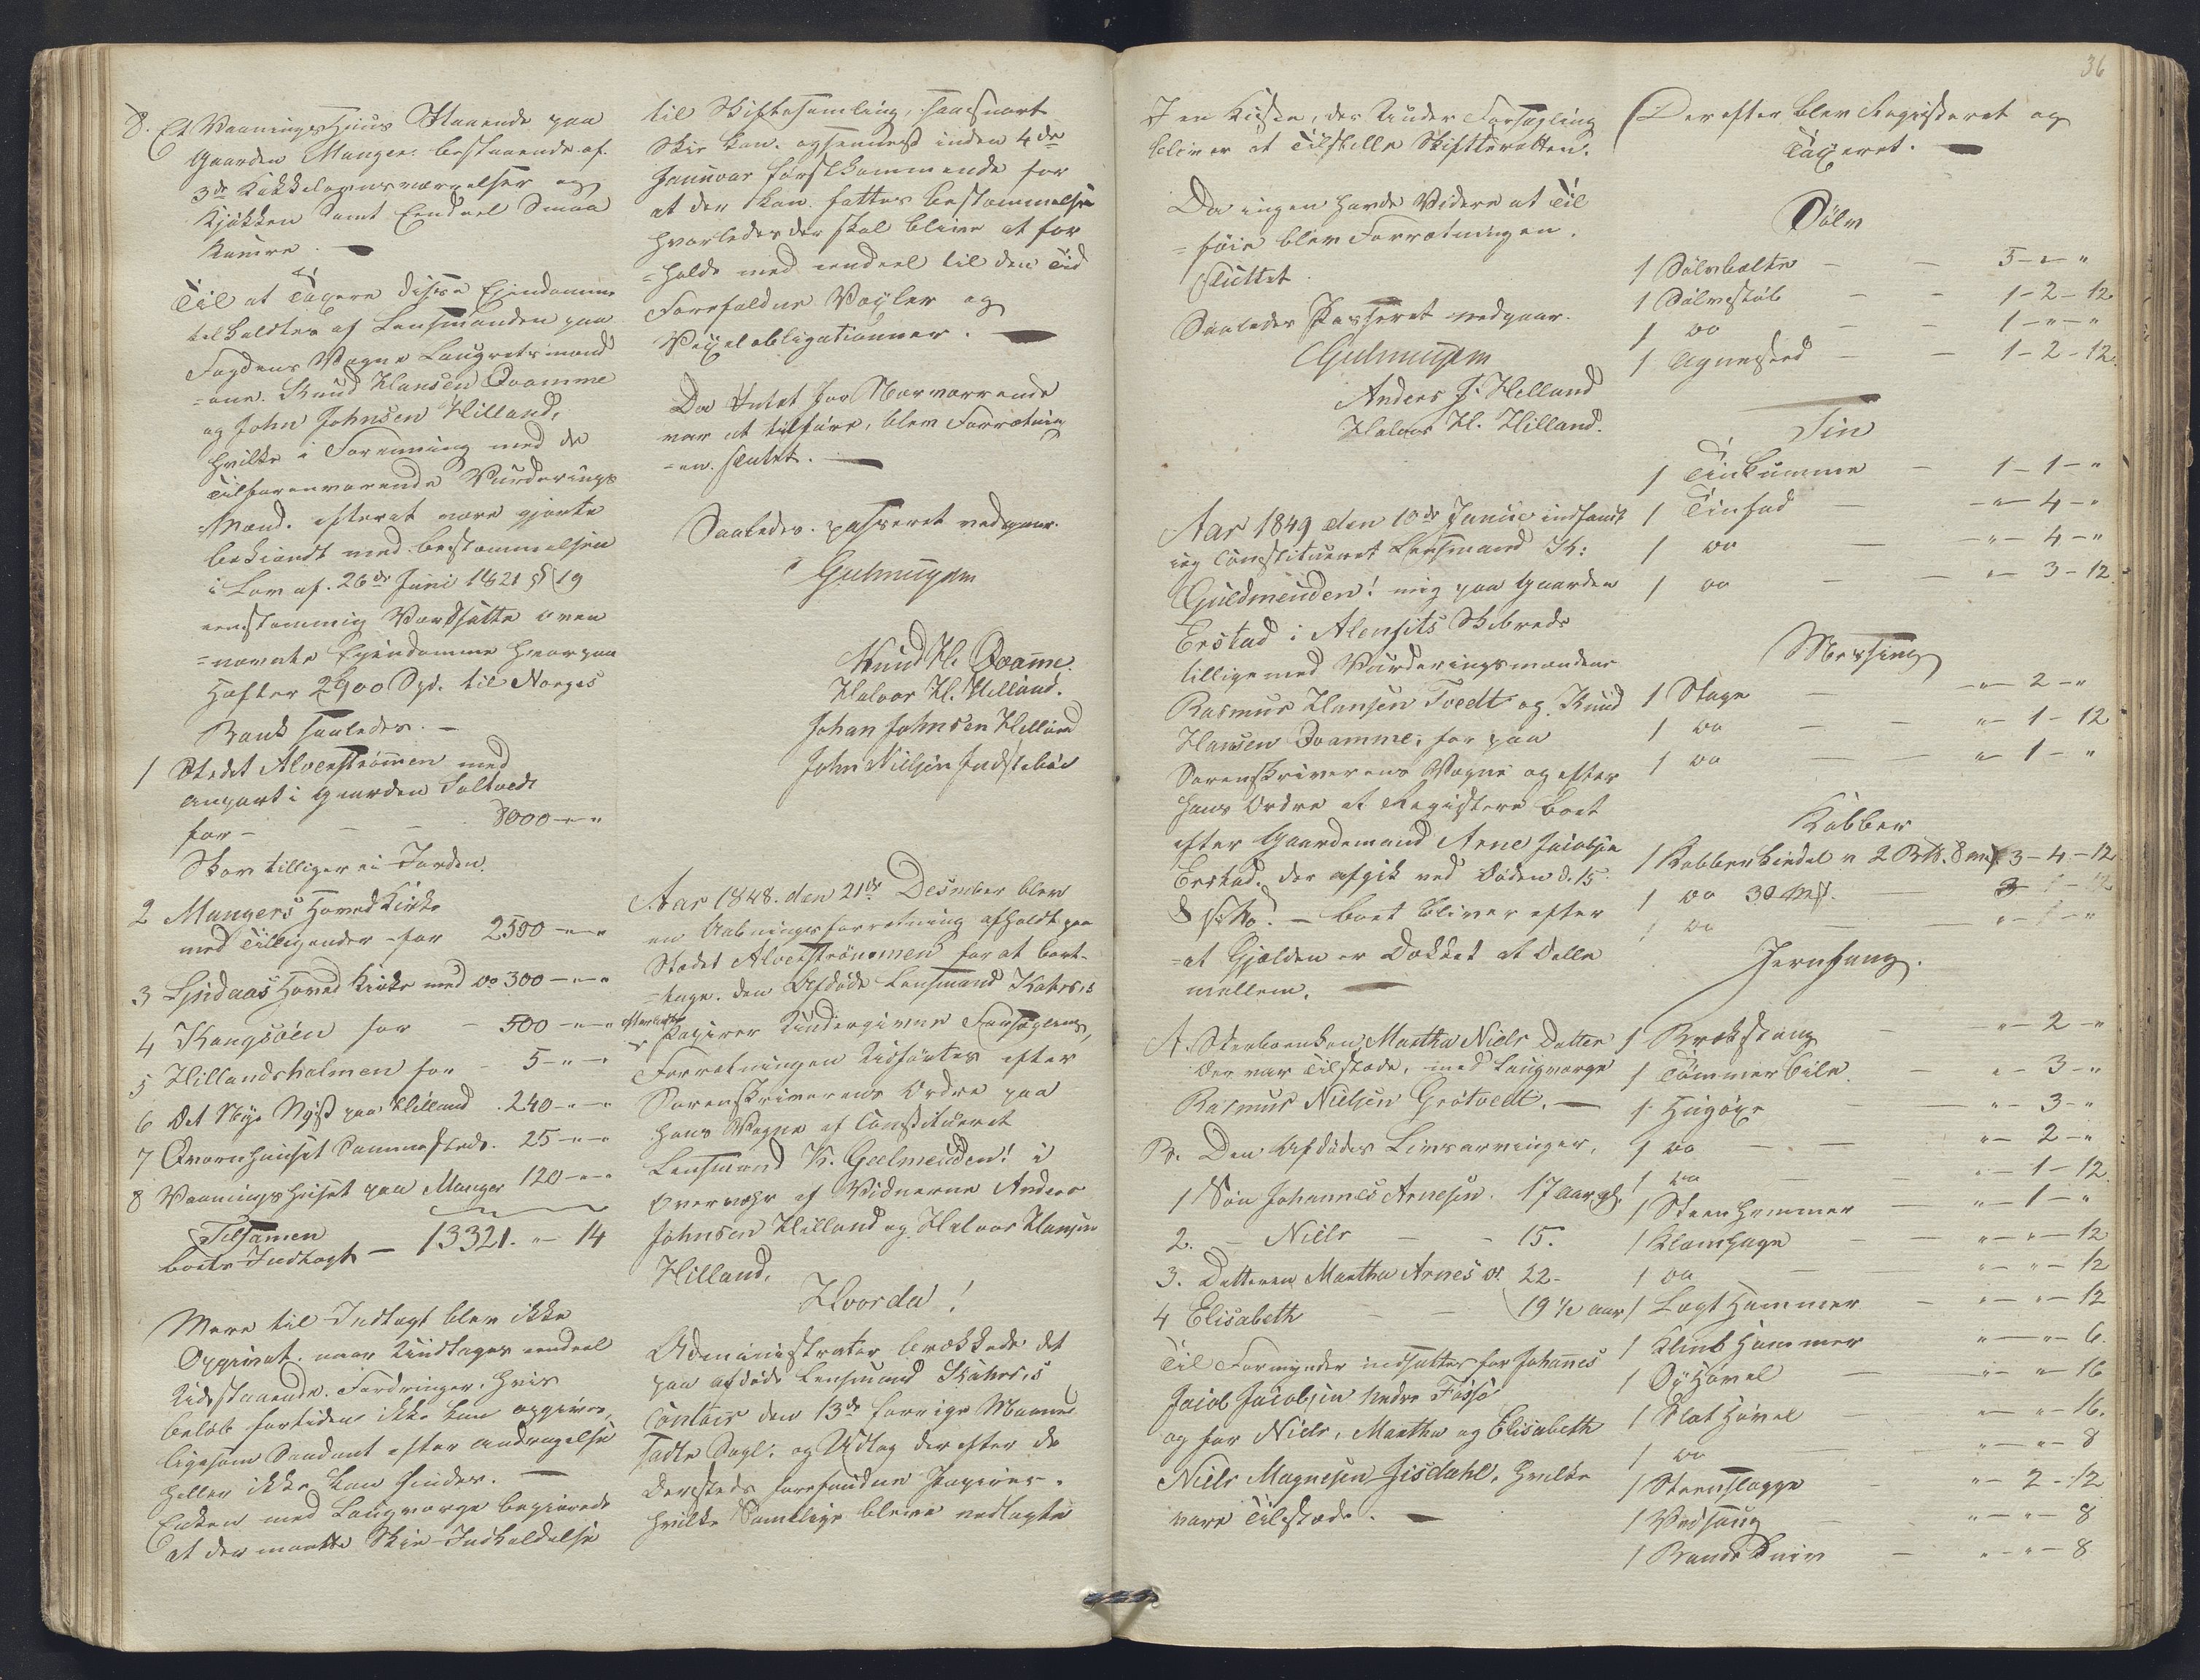 8. Et Vaaningshuus Staaende paa
Gaarden Manger bestaaende af
3de Kakkelovnsværrelser og
Kjøkken samt Eendeel Smaa
Kamre.
Til at Taxere disse Eiendomme
tilkaldtes af Lensmanden paa
Fogdens Vegne Laugretsmænd
=ene. Knud Hansen Qvamme
og John Johnsen Hilland,
hvilke i Forening med de
Tilforenværende Vurderings
Mænd. efterat være gjorte
bekiendt med bestemmelsen
i Lov af 26de Juni 1821 § 19
eenstemmig Værdsatte oven
=nævnte Eiendomme hvorpaa
Hæfter 2900 Spd. til Norges
Bank saaledes. -
1 Stedet Alverstrømmen med
anpart i Gaarden Soltvedt
for - 8000 - " - "
Skov tilligger ei Jorden.
2 Mangers Hoved Kirke
med Tilliggender for 2500 - " - "
3 Lindaas Hoved Kirke med do 300 - " - "
4 Kongsøen for - 500 - " - "
5 Hillandsholmen for - 5 - " - "
6 Det Nye Nøst paa Hilland 240 - " - "
7 Qværnhuuset Sammesteds. 25 - " - "
8 Vaaningshuset paa Manger 120 - " - "
Tilsamen
boets Indtægt - 13321. " 14
Mere til Indtægt blev ikke
Opgivet. naar Undtages eendeel
Udestaaende Fordringer, hvis
beløb fortiden ikke kan opgives,
ligesom Saadant efter andragelse
heller ikke kan findes. -
Enken med Laugværge begierede
at der maatte Skee Indkaldelse
til Skiftesamling, saasnart
Skee kan. og senest inden 4de
Januar førstkommende for
at der kan fattes bestemmelse
hvorledes der skal blive at for
=holde med eendeel til den Tid
Forefaldne Vexler og
Vexelobligationner. -
Da Intet for Nærværende
var at tilføre, blev Forretning
=en. sluttet. -
Saaledes. passeret vedgaar.
Gulmeyden
Knud H. Qvamme.
Halvor H. Hilland.
Johan Johnsen Hilland
John Nielsen Indstebøe
Aar 1848. den 21de Desember blev
en Aabningsforretning afholdt paa
Stædet Alverstrømmen for at bort-
=tage. den Afdøde Lensmand Kahrs,s
efterladte Papirer Undergivne Forsegling,
Forretningen Udførtes efter
Sorenskriverens Ordre paa
hans Vegne af Constitueret
Lensmand K. Gulmeyden! i
Overvær af Vidnerne Anders
Johnsen Hilland og Halvor Hansen
Hilland.
Hvorda!
Administrator brækkede det
paa afdøde Lensmand Kahrs,s
Contoir den 13de forrige Maaned
satte Segl: og Udtog derefter de
dersteds forefundne Papirer.
hvilke Samtlige bleve nedlagte
I en Kiste, der Under Forsegling
bliver at Tilstille Skifteretten.
Da ingen havde Videre at Til
=føie blev Forretningen.
Sluttet
Saaledes Passeret vedgaar.
Gulmeyden
Anders J. Hilland
Halvor H. Hilland.
Aar 1849 den 10de Janui indfandt
ieg Constitueret Lensmand K:
Guldmeyden! mig paa Gaarden
Erstad i Alenfits Skibrede
tilligemed Vurderingsmændene
Rasmus Hansen Tvedt og Knud
Hansen Qvamme, for paa
Sorenskriverens Vegne og efter
hans Ordre at Registere boet
efter Gaardemand Arne Jacobsen
Erstad. der afgik ved Døden d. 15
- boet bliver efter
=at Gjælden er Dækket at Delle
mellem. -
A. Sterboenken Martha Niels Datter
der var Tilstæde, med Laugværge
Rasmus Nielsen Grøtvedt. -
B. Den Afdødes Livsarvinger,
1 Søn Johannes Arnesen. 17 aar gl.
2. - Niels - - 15.
3. Datteren Martha Arnes D. 22 -
4 Elisabeth - - 19½ aar
Til Formynder indsattes for Johannes
Jacob Jacobsen Nedre Fosse
og for Niels, Martha og Elisabeth
Niels Magnesen Jisdahl, hvilke
vare Tilstæde. -
36
Derefter blev Registeret og
Taxeret. -
Sølv
1 Sølvbælte - - 5 - " - "
1 Sølvestøb - - 1 - 2 - 12
1 do - - 1 - " - "
1 Agnested - - 1 - 2 - 12
Tin
1 Tinkumme - 1 - 1 - "
1 Tinfad - - " - 4 - "
1 do - - " - 4 - "
1 do - - " - 3 - 12
Messing
1 Stage - - " - 2 - "
1 do - - " - 1 - 12
1 do - - " - 1 - "
Kobber
1 Kobberkiedel v 2 B℔. 8 mk. 3 - 4 - 12
1 do 30 mk. - 1 - 12
1 do - - " - 1 - "
Jernfang.
1 Brækstang - " - 2 - "
1 Tømmerbile. - " - 3 - "
1 Hugøxe - - " - 3 - "
1 do - - " - 2 - "
1 do - - " - 1 - 12
1 Steenhammer - " - 1 - "
1 Klamhage - - " - " - 12
1 do - " - " - 12
1 Lægt Hammer - " - " - 12
1 Klinkhammer " - " - 6.
1 Øxhøvel - " - " 16
1 Slathøvel - " - " - 16.
1 do - " - " - 8
1 Steenslægge - " - 2 - 12
1 Vedsaug - " - " - 8
1 Baandkniv - " - " - 8